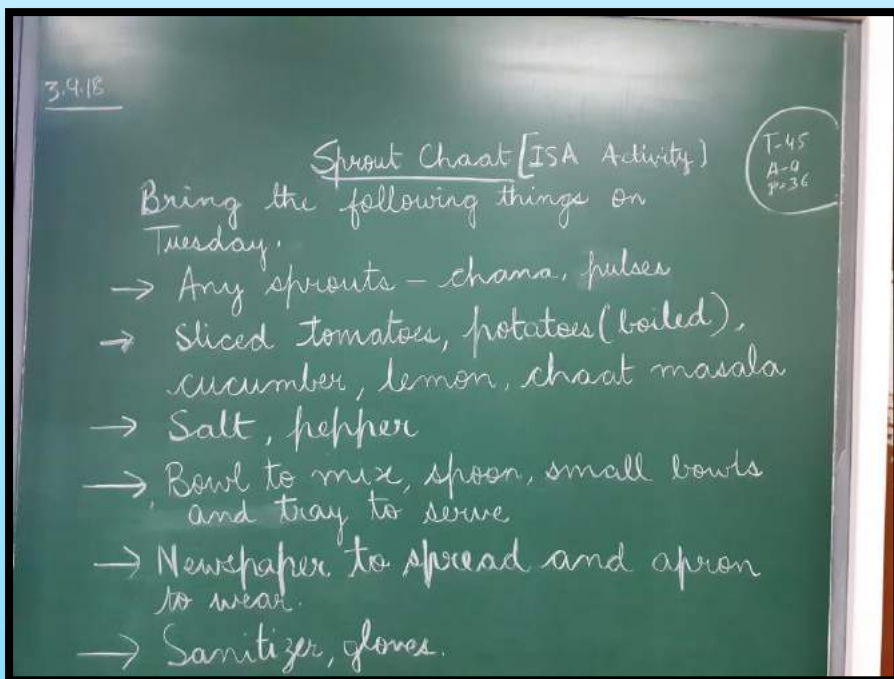 3.9.18
Sprout Chaat [ISA Activity]
T-45
A-9
P-36
Bring the following things on
Tuesday.
→ Any sprouts - chana, pulses
→ Sliced tomatoes, potatoes (boiled),
cucumber, lemon, chaat masala
→ Salt, pepper
→ Bowl to mix, spoon, small bowls
and tray to serve
→ Newspaper to spread and apron
to wear.
→ Sanitizer, gloves.